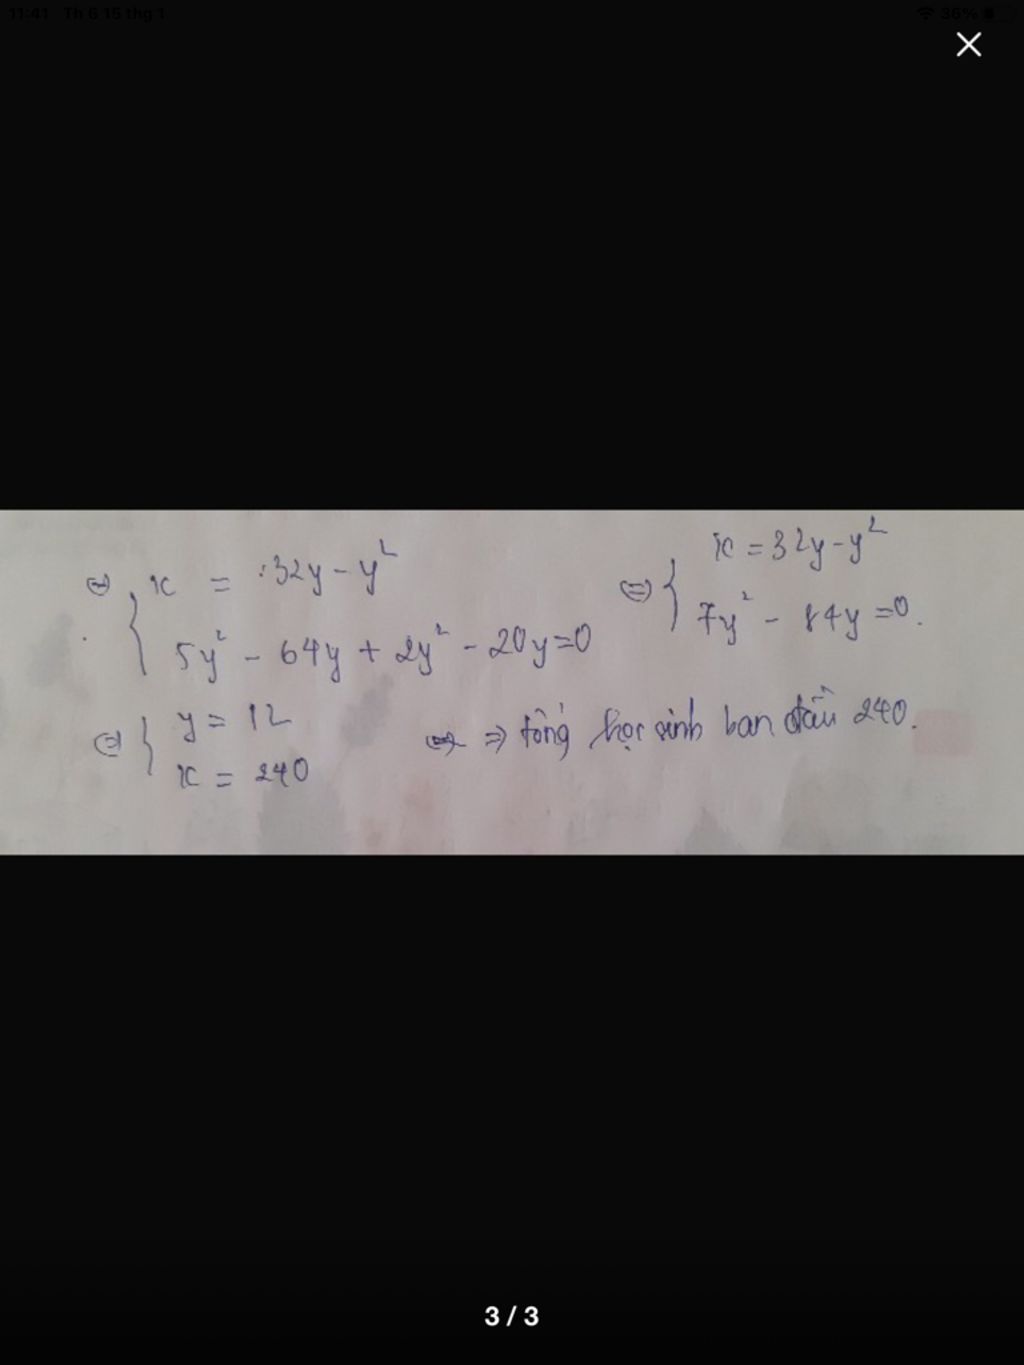 11:41 Th 6 15 thg 1
36%
⇔ { x = 32y - y²
5y² - 64y + 2y² - 20y = 0
⇔ { x = 32y - y²
7y² - 84y = 0.
⇔ { y = 12
x = 240
⇒ tổng học sinh ban đầu 240.
3 / 3